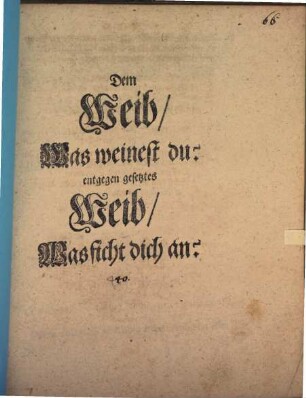 66
Dem
Weib/
Was weinest du?
entgegen gesetztes
Weib/
Was ficht dich an?